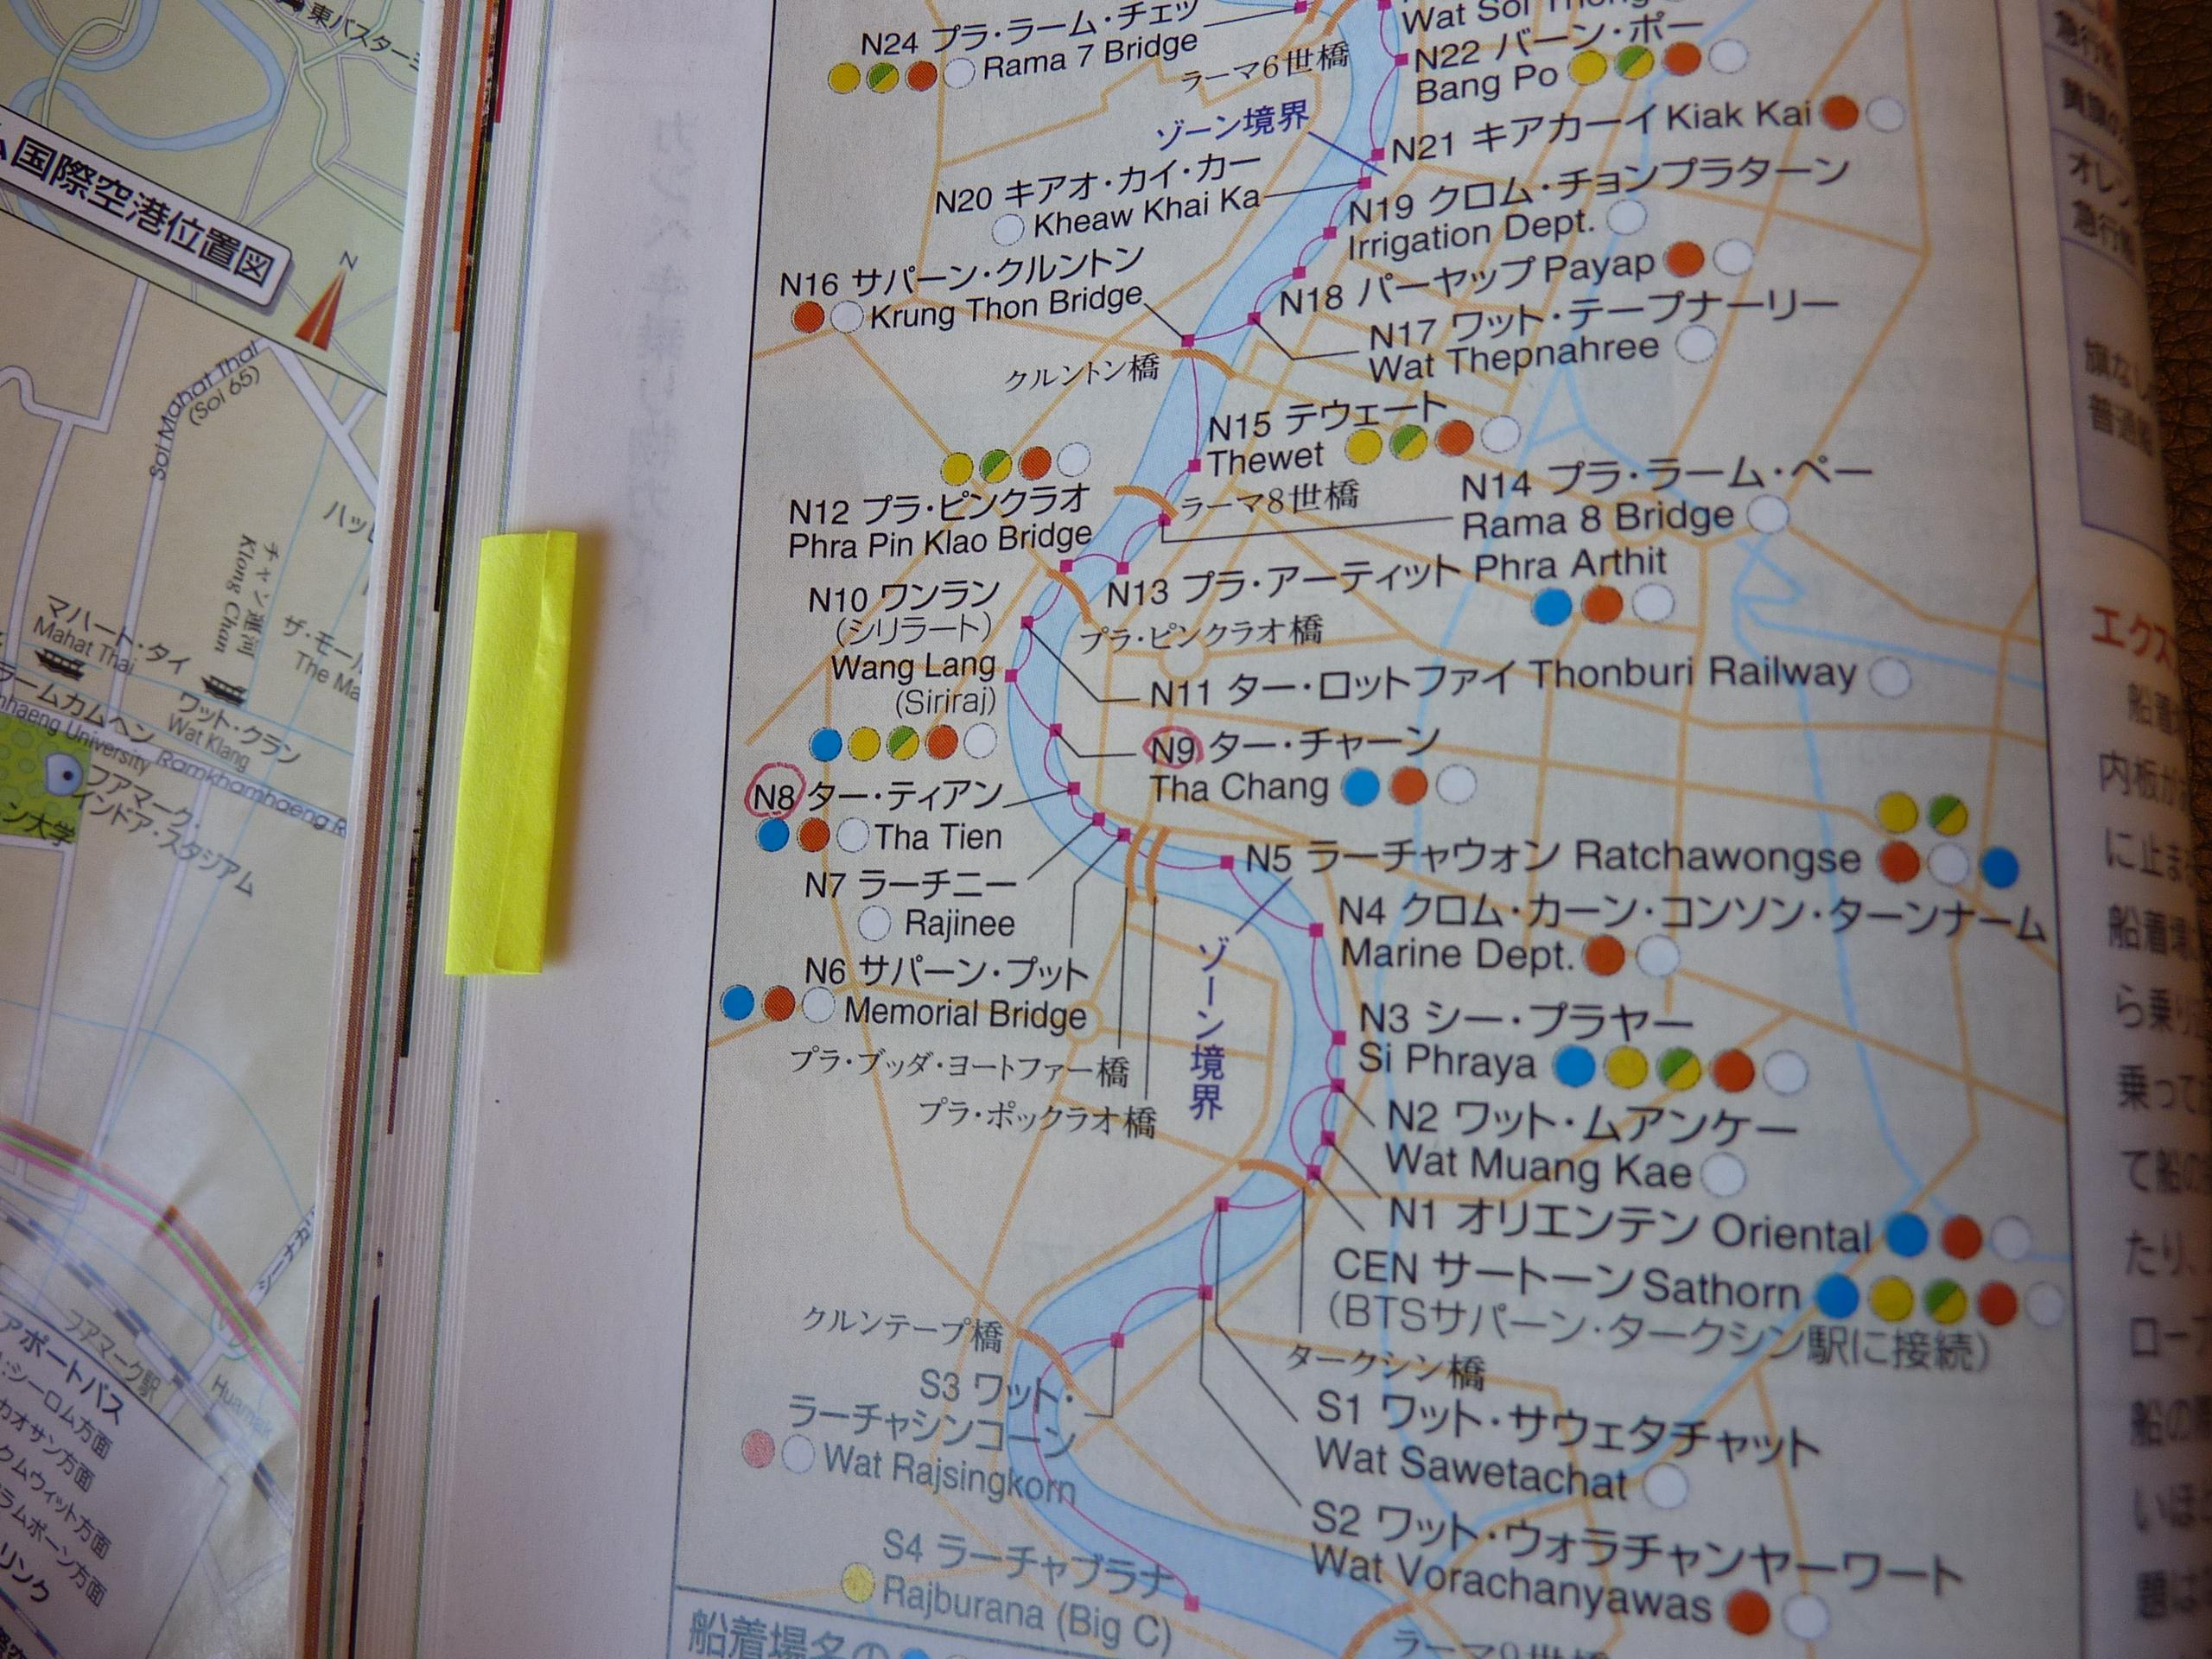 東バスター
国際空港位置図
N
Soi Mahat Thai
(Soi 65)
チャン運河
Klong Chan
マハート・タイ
Mahat Thai
ワット・クラン
Wat Klang
ザ・モール
The Ma
ラームカムヘン
nhaeng University
Ramkhamhaeng R
フアマーク・
インドア・スタジアム
ン大学
フアマーク駅
Huamak
アポートバス
:シーロム方面
カオサン方面
クムウィット方面
ラムポーン方面
リンク
N24 プラ・ラーム・チェッ
Rama 7 Bridge
ラーマ6世橋
N22 バーン・ポー
Bang Po
ゾーン境界
N21 キアカーイ Kiak Kai
N20 キアオ・カイ・カー
Kheaw Khai Ka
N19 クロム・チョンプラターン
Irrigation Dept.
N18 パーヤップ Payap
N16 サパーン・クルントン
Krung Thon Bridge
N17 ワット・テープナーリー
Wat Thepnahree
クルントン橋
N15 テウェート
Thewet
N14 プラ・ラーム・ペー
Rama 8 Bridge
ラーマ8世橋
N12 プラ・ピンクラオ
Phra Pin Klao Bridge
N13 プラ・アーティット Phra Arthit
プラ・ピンクラオ橋
N10 ワンラン
(シリラート)
Wang Lang
(Siriraj)
N11 ター・ロットファイ Thonburi Railway
N9 ター・チャーン
Tha Chang
N8 ター・ティアン
Tha Tien
N7 ラーチニー
Rajinee
N5 ラーチャウォン Ratchawongse
N6 サパーン・プット
Memorial Bridge
N4 クロム・カーン・コンソン・ターンナーム
Marine Dept.
ゾーン境界
プラ・ブッダ・ヨートファー橋
プラ・ポックラオ橋
N3 シー・プラヤー
Si Phraya
N2 ワット・ムアンケー
Wat Muang Kae
N1 オリエンテン Oriental
CEN サートーン Sathorn
(BTSサパーン・タークシン駅に接続)
タークシン橋
クルンテープ橋
S3 ワット・
ラーチャシンコーン
Wat Rajsingkorn
S1 ワット・サウェタチャット
Wat Sawetachat
S2 ワット・ウォラチャンヤーワート
Wat Vorachanyawas
S4 ラーチャブラナ
Rajburana (Big C)
ラーマ9世橋
船着場名の
エクス
船着
内板か
に止ま
船着場
ら乗り
乗って
て船の
たり、
ロー
船の